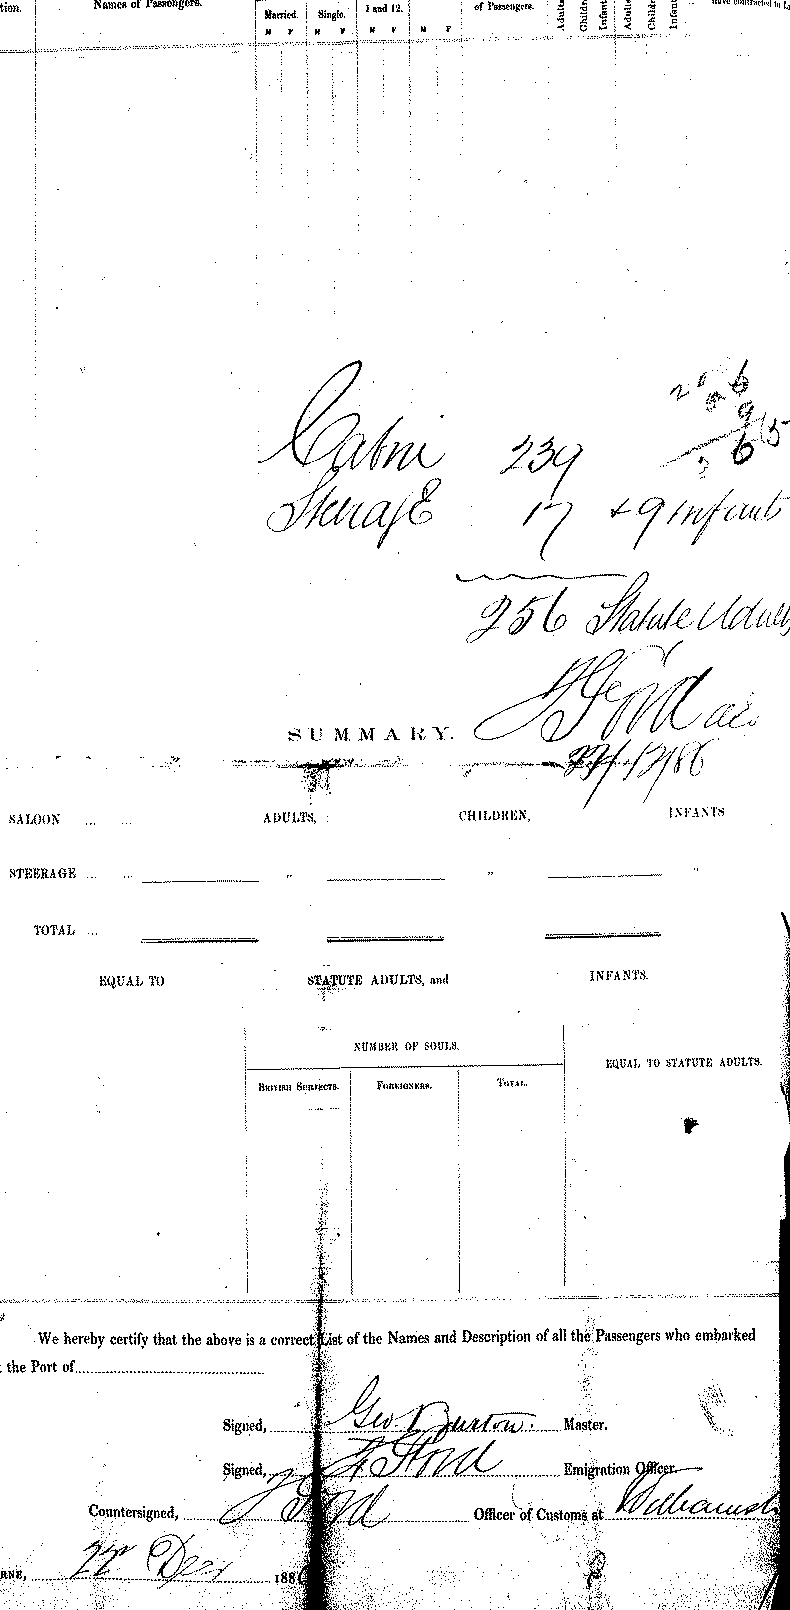 tion. Names of Passengers. Married. Single. 1 and 12. of Passengers. Adults Children Infants Adults Children Infants have contracted to
M F M F M F M F
Cabin 239
Steerage 17 + 9 infants
256 Statute Adults
22/12/86
SUMMARY.
SALOON ... ... ADULTS, CHILDREN, INFANTS
STEERAGE ... ... " " "
TOTAL ...
EQUAL TO STATUTE ADULTS, and INFANTS.
NUMBER OF SOULS.
EQUAL TO STATUTE ADULTS.
BRITISH SUBJECTS. FOREIGNERS. TOTAL.
We hereby certify that the above is a correct List of the Names and Description of all the Passengers who embarked
the Port of
Signed, Geo. Burton. Master.
Signed, Ford Emigration Officer.
Countersigned, Ford Officer of Customs at Williamst
RNE, 22 Dec 1886